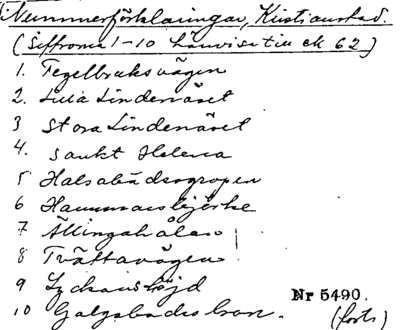 Nummerförklaringar, Kristianstad.
(Siffrorna 1-10 hänvisa till ek 62)
1. Tegelbruksvägen
2. Lilla Lindenäset
3 Stora Lindenäset
4. Sankt Helena
5 Halsabäcksgropen
6 Hammars
7 Ällingahålan
8 Tvättavägen
9 Lyckans höjd
10 Galgabacks
Nr 5490.
(forts)